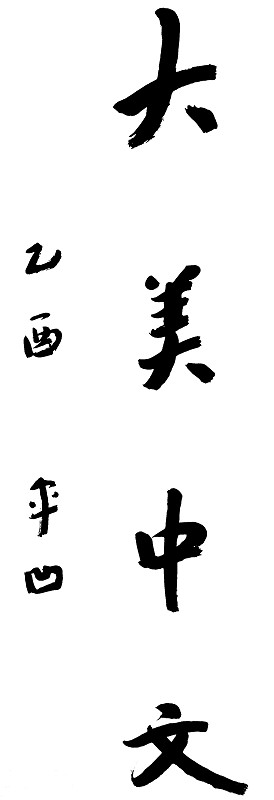 大美中文
乙酉 平凹